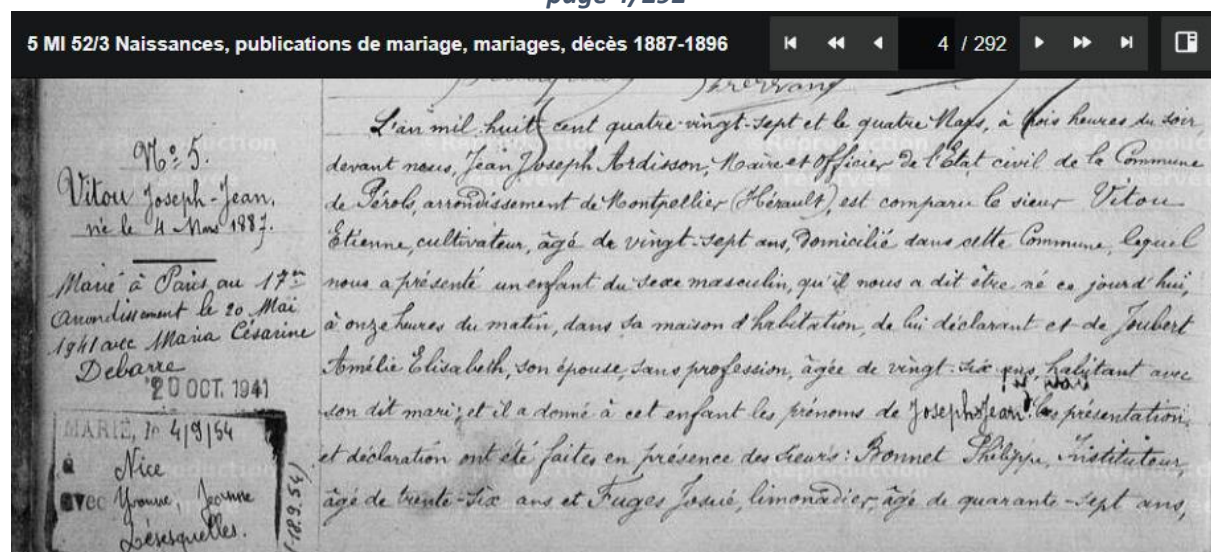 page 4/292
5 MI 52/3 Naissances, publications de mariage, mariages, décès 1887-1896
4 / 292
N° 5.
Vitou Joseph-Jean.
né le 4 Mars 1887.
Marié à Paris au 17me
Arrondissement le 20 Mai
1941 avec Maria Césarine
Debarre
20 OCT. 1941
MARIÉ, le 4/9/54
à Nice
avec Yvonne, Jeanne
(18.9.54)
L'an mil huit cent quatre-vingt-sept et le quatre Mars, à trois heures du soir,
devant nous, Jean Joseph Ardisson, Maire et Officier de l'État civil de la Commune
de Pérols, arrondissement de Montpellier (Hérault), est comparu le sieur Vitou
Etienne, cultivateur, âgé de vingt-sept ans, domicilié dans cette Commune, lequel
nous a présenté un enfant du sexe masculin, qu'il nous a dit être né ce jourd'hui,
à onze heures du matin, dans sa maison d'habitation, de lui déclarant et de Joubert
Amélie Elisabeth, son épouse, sans profession, âgée de vingt-six ans, habitant avec
son dit mari; et il a donné à cet enfant les prénoms de Joseph Jean. Les présentation
et déclaration ont été faites en présence des sieurs: Bonnet Philippe, Instituteur,
âgé de trente-six ans et Fuges Josué, limonadier, âgé de quarante-sept ans,